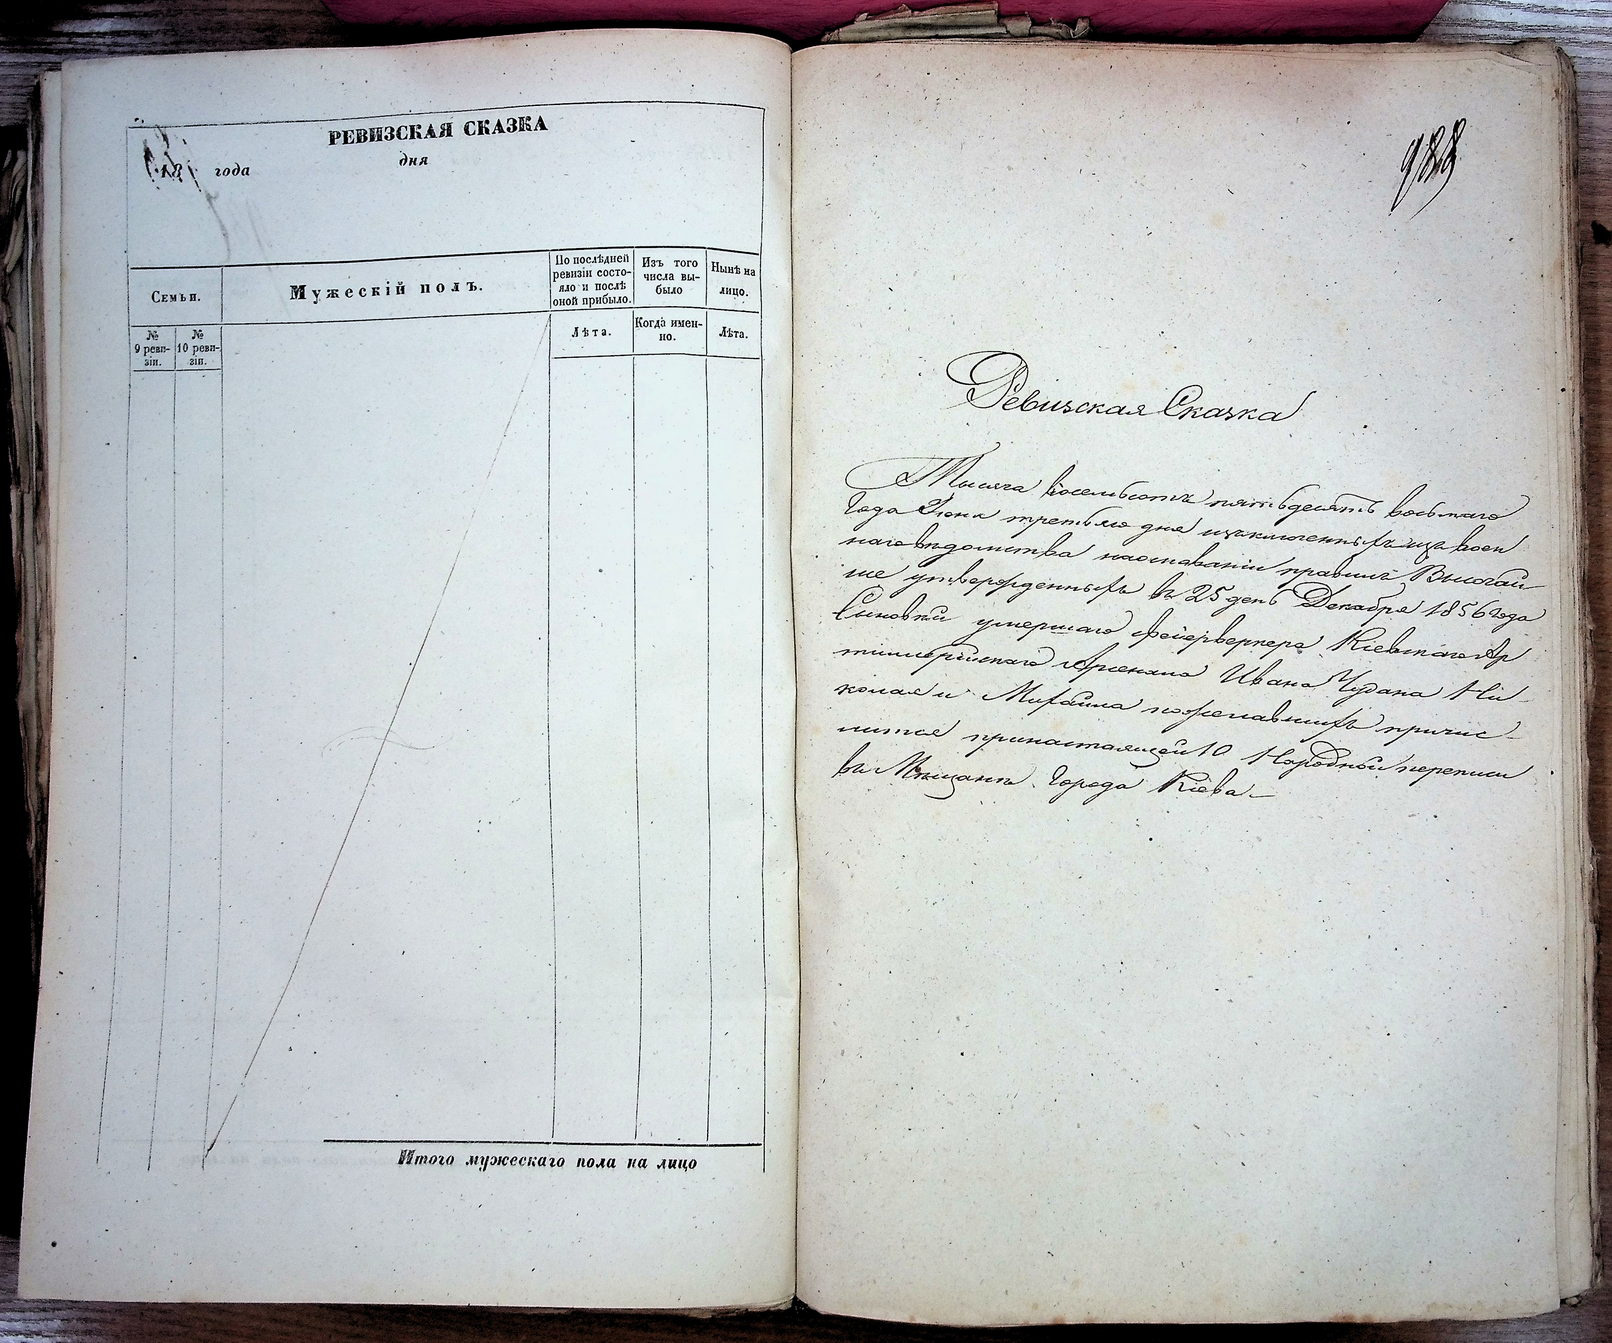 РЕВИЗСКАЯ СКАЗКА
18 года дня
Семьи.
Мужескій полъ.
По послѣдней
ревизіи состо-
яло и послѣ
оной прибыло.
Изъ того
числа вы-
было
Нынѣ на
лицо.
№
9 реви-
зіи.
№
10 реви-
зіи.
Лѣта.
Когда имен-
но.
Лѣта.
Итого мужескаго пола на лицо
988
Ревизская Сказка
Тысяча восемьсотъ пятьдесятъ восьмаго
Года Іюня третьяго дня изключенныхъ изъ воен
наго вѣдомства наоснованіи правилъ Высочай-
ше утвержденныхъ въ 25 день Декабря 1856 года
Сыновей умершаго фейерверкера Кіевскаго Ар
тиллерійскаго Арсенала Ивана Чудана Ни-
колая и Михаила пожелавшихъ причис-
лится принастоящей 10 Народной переписи
въ Мѣщане Города Кіева.